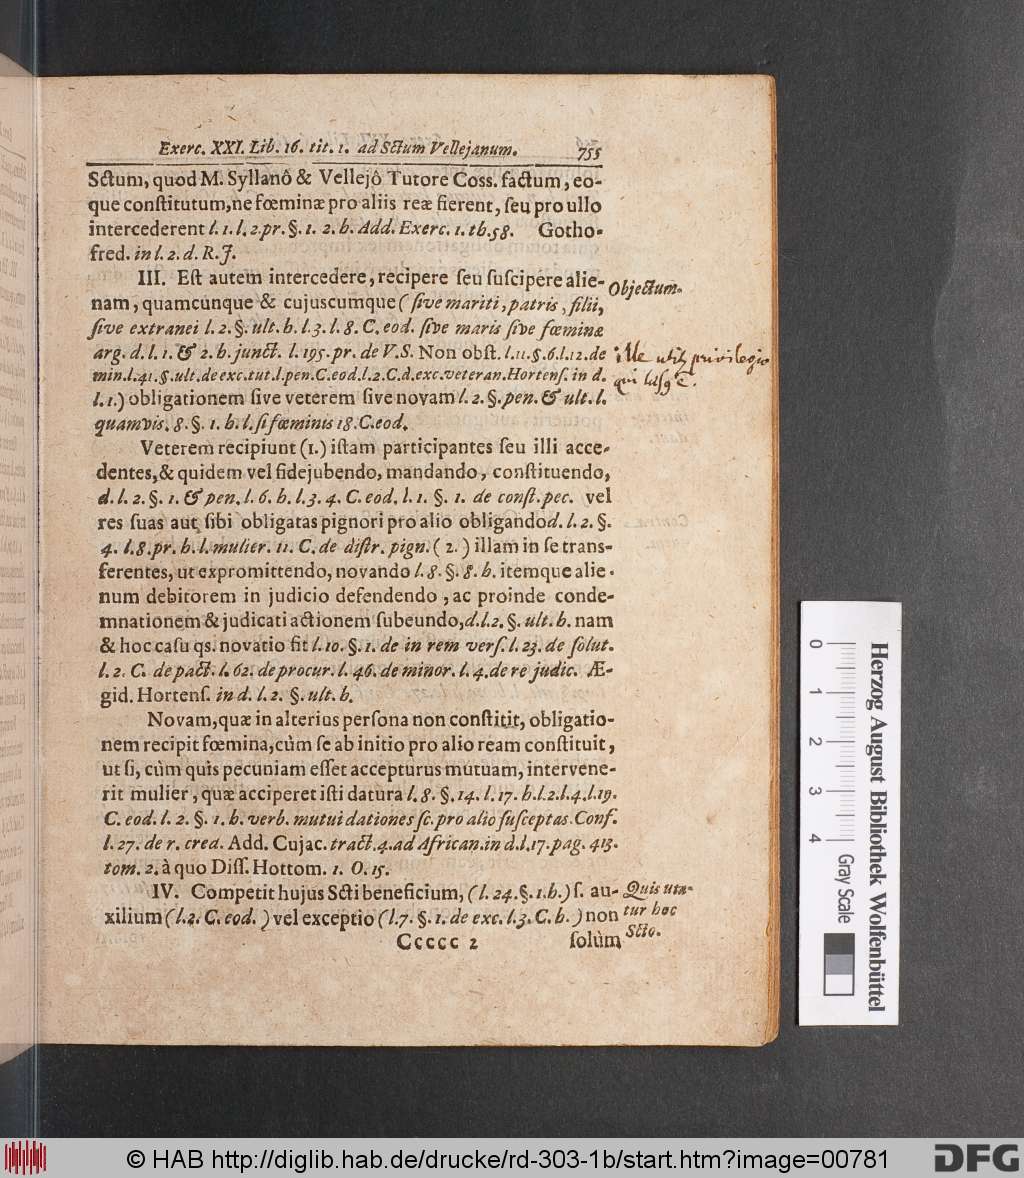 Exerc. XXI. Lib. 16. tit. 1. ad Sctum Vellejanum. 755
Sctum, quod M. Syllanô & Vellejô Tutore Coss. factum, eo-
que conſtitutum, ne fœminæ pro aliis reæ fierent, ſeu pro ullo
intercederent l. 1. l. 2. pr. §. 1. 2. h. Add. Exerc. 1. th. 58. Gotho-
fred. in l. 2. d. R. J.
III. Eſt autem intercedere, recipere ſeu ſuſcipere alie-
nam, quamcunque & cujuscumque (ſive mariti, patris, filii,
ſive extranei l. 2. §. ult. h. l. 3. l. 8. C. eod. ſive maris ſive fœminæ
arg. d. l. 1. & 2. h. junct. l. 195. pr. de V. S. Non obſt. l. 11. §. 6. l. 12. de
min. l. 41. §. ult. de exc. tut. l. pen. C. eod. l. 2. C. d. exc. veteran. Hortenſ. in d.
l. 1.) obligationem ſive veterem ſive novam l. 2. §. pen. & ult. l.
quamvis. 8. §. 1. h. l. ſi fœminis 18. C. eod.
Objectum.
ille utit privilegio
qui
Veterem recipiunt (1.) iſtam participantes ſeu illi acce-
dentes, & quidem vel fidejubendo, mandando, conſtituendo,
d. l. 2. §. 1. & pen. l. 6. h. l. 3. 4. C. eod. l. 1. §. 1. de conſt. pec. vel
res ſuas aut ſibi obligatas pignori pro alio obligando d. l. 2. §.
4. l. 8. pr. h. l. mulier. 11. C. de diſtr. pign. (2.) illam in ſe trans-
ferentes, ut expromittendo, novando l. 8. §. 8. h. itemque alie-
num debitorem in judicio defendendo, ac proinde conde-
mnationem & judicati actionem ſubeundo, d. l. 2. §. ult. h. nam
& hoc caſu qs. novatio fit l. 10. §. 1. de in rem verſ. l. 23. de ſolut.
l. 2. C. de pact. l. 62. de procur. l. 46. de minor. l. 4. de re judic. Æ-
gid. Hortenſ. in d. l. 2. §. ult. h.
Novam, quæ in alterius perſona non conſtitit, obligatio-
nem recipit fœmina, cùm ſe ab initio pro alio ream conſtituit,
ut ſi, cùm quis pecuniam eſſet accepturus mutuam, intervene-
rit mulier, quæ acciperet iſti datura l. 8. §. 14. l. 17. h. l. 2. l. 4. l. 19.
C. eod. l. 2. §. 1. h. verb. mutui dationes ſc. pro alio ſuſceptas. Conf.
l. 27. de r. cred. Add. Cujac. tract. 4. ad African. in d. l. 17. pag. 413.
tom. 2. à quo Diſſ. Hottom. 1. O. 15.
IV. Competit hujus Scti beneficium, (l. 24. §. 1. h.) ſ. au-
xilium (l. 2. C. eod.) vel exceptio (l. 7. §. 1. de exc. l. 3. C. h.) non
Quis uta-
tur hoc
Scto.
Ccccc 2 ſolùm
Herzog August Bibliothek Wolfenbüttel
0 1 2 3 4 Gray Scale
© HAB http://diglib.hab.de/drucke/rd-303-1b/start.htm?image=00781
DFG